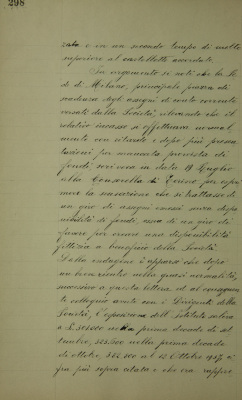 298
zato e in un secondo tempo di molto
superiore al castelletto accordato.
In argomento si noti che la N.
S. di Milano, principale piazza di
scadenza degli assegni di conto corrente
versati dalla Società, rilevando che il
relativo incasso si effettuava normal
mente con ritardo e dopo più presen
tazioni per mancata provvista di
fondi scriveva in data 19 Luglio
alla Consorella di Torino per espri
mere la sensazione che si trattasse di
un giro di assegni emessi senza dispo
nibilità di fondi, ossia di un giro di
favore per creare una disponibilità
fittizia a beneficio della Società.
Dalle indagini è apparso che dopo
un breve rientro nella quasi normalità,
successivo a questa lettera ed al conseguen
te colloquio avuto con i Dirigenti della
Società, l'esposizione dell'Istituto saliva
a £. nella prima decade di set
tembre, nella prima decade
di ottobre, al 12 Ottobre 1927 e
fra più sopra citata e che era rappre